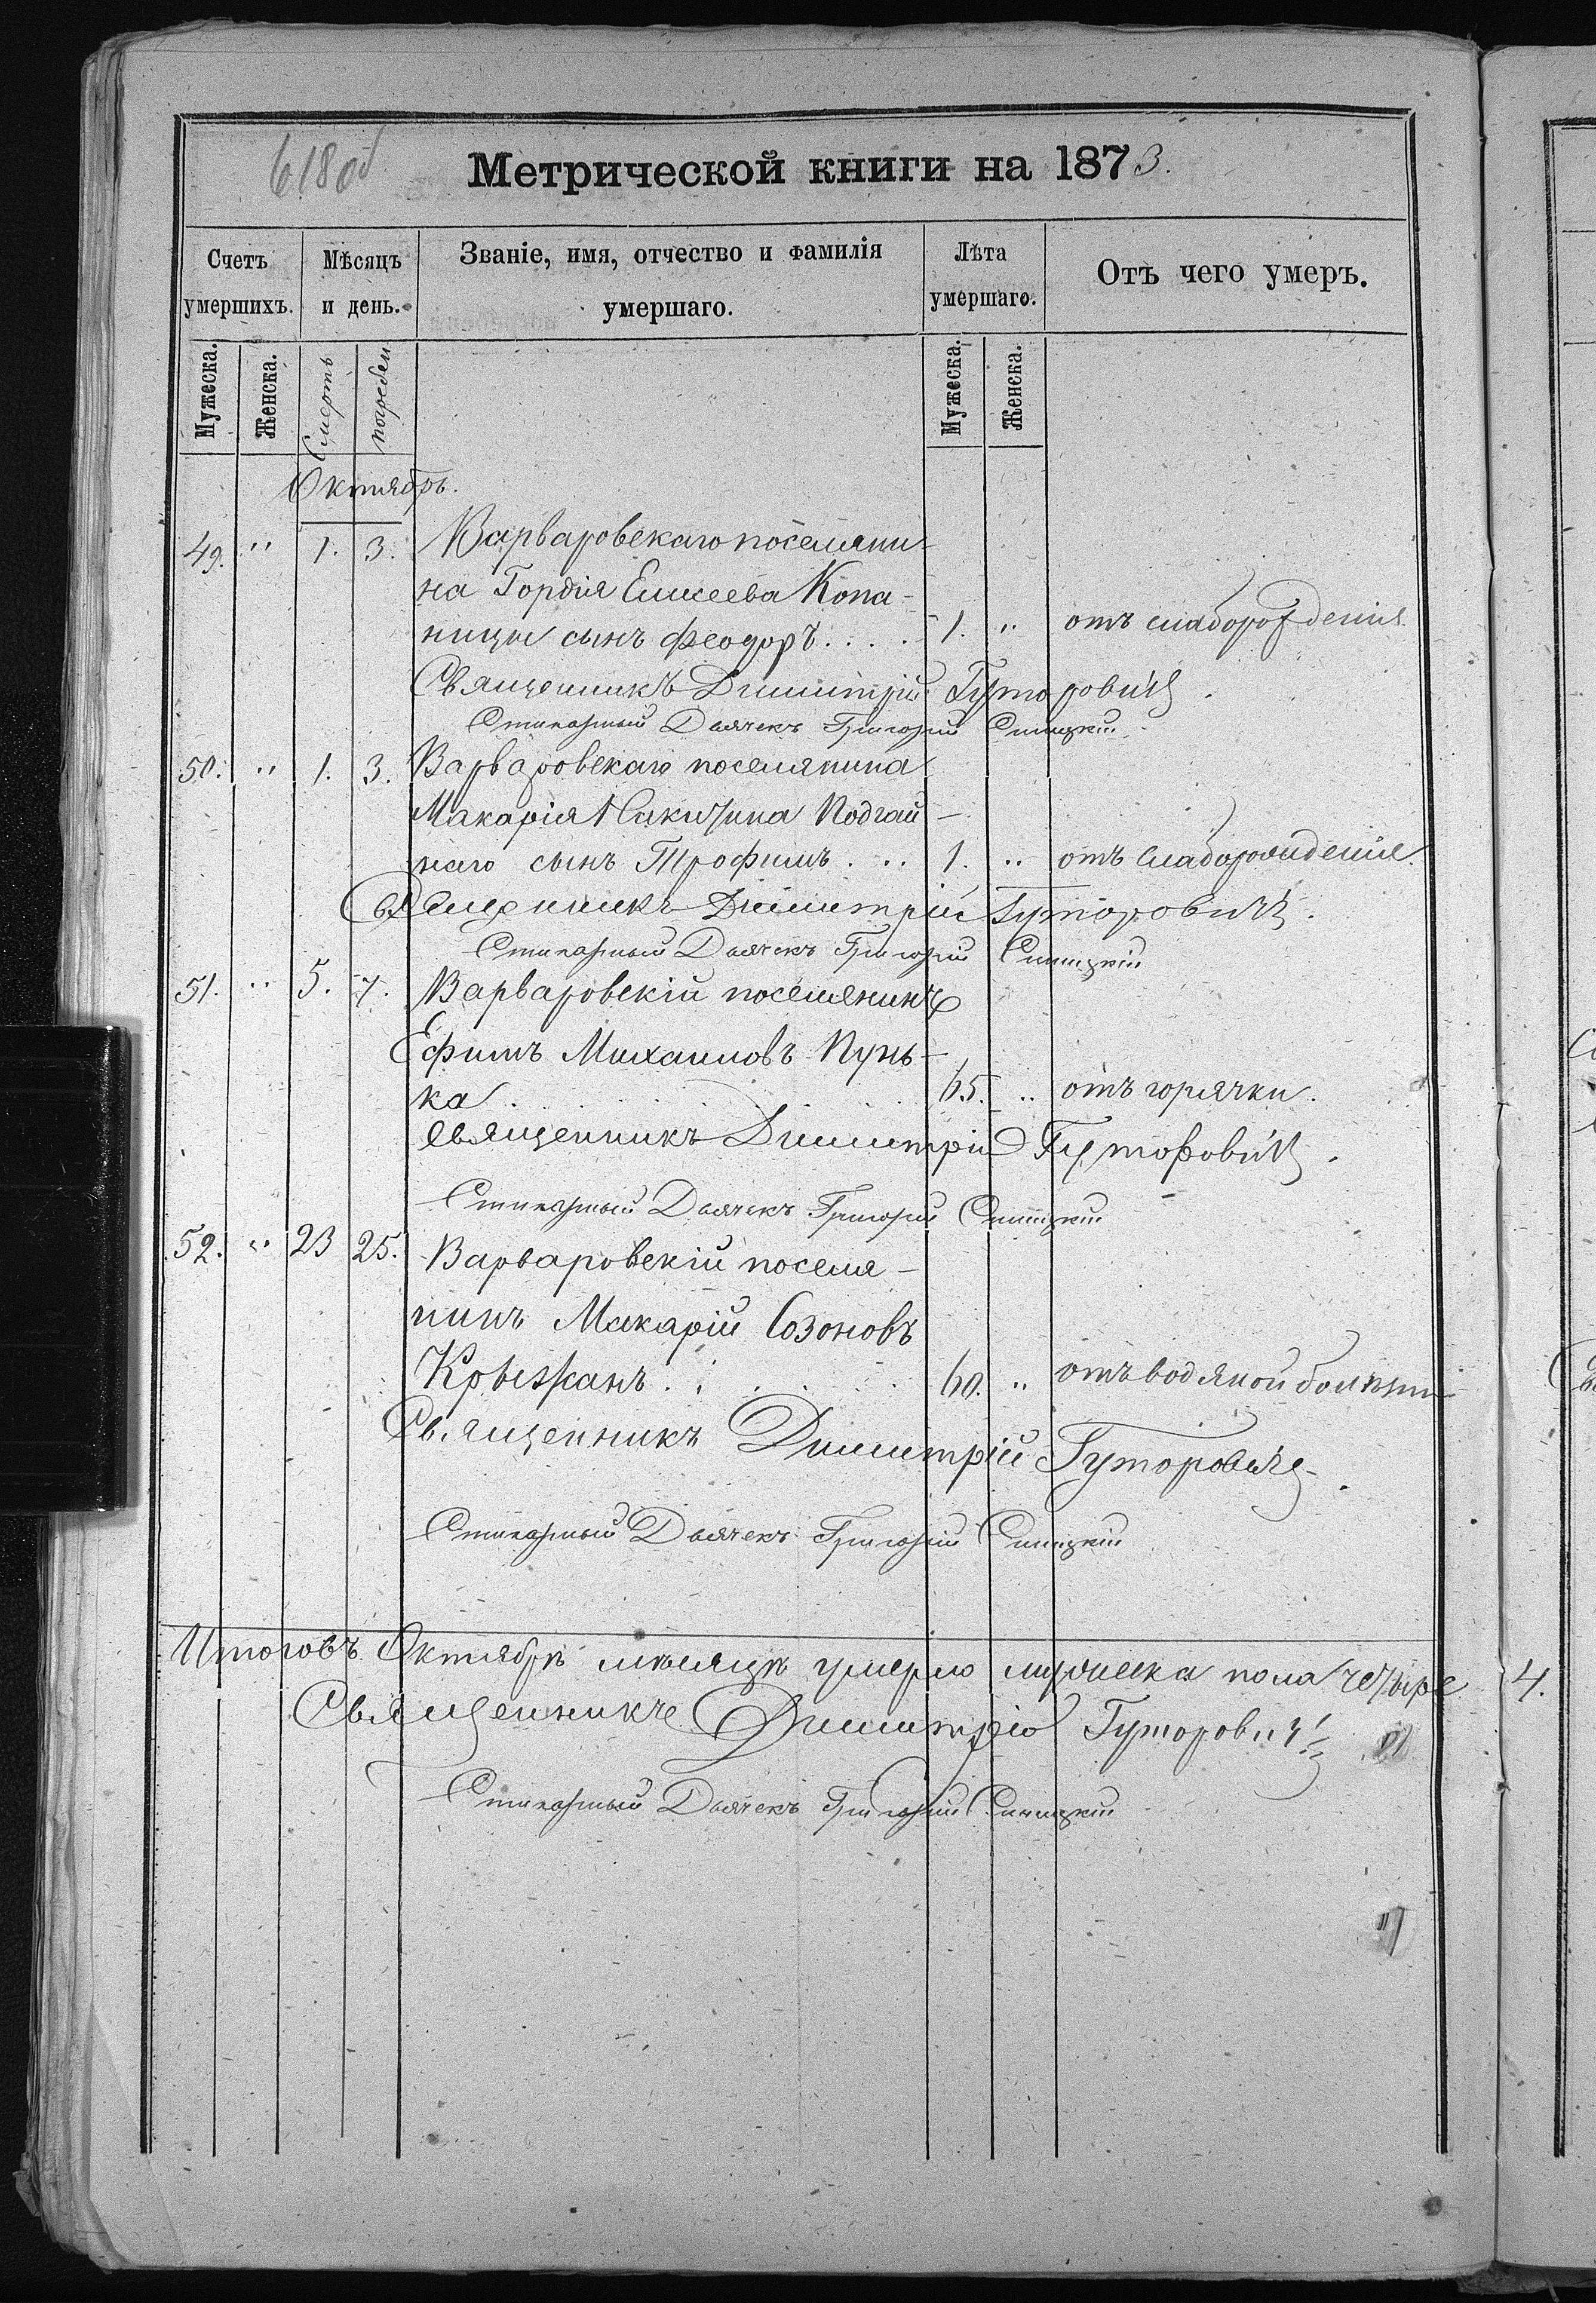 618об
Метрической книги на 1873.
Счетъ умершихъ.
Мѣсяцъ и день.
Званіе, имя, отчество и фамилія умершаго.
Лѣта умершаго.
Отъ чего умеръ.
Мужеска. Женска. Смерть погребен Мужеска. Женска.
Октябрь.
49. " 1. 3. Варваровскаго поселяни-
на Гордія Елисеева Копа-
ницы сынъ Феодоръ.... 1. " отъ слаборожденія
Священникъ Димитрій Гуторовичъ.
Стихарный Дьячекъ Григорій Синицкій
50. " 1. 3. Варваровскаго поселянина
Макарія Никитина Подгай-
наго сынъ Трофимъ... 1. " отъ слаборожденія.
Священникъ Димитрій Гуторовичъ.
Стихарный Дьячекъ Григорій Синицкій
51. " 5. 7. Варваровскій поселянинъ
Ефимъ Михаиловъ Пунь-
ка...... 65. " отъ горячки.
Священникъ Димитрій Гуторовичъ.
Стихарный Дьячекъ Григорій Синицкій
52. " 23 25. Варваровскій поселя-
нинъ Макарій Созоновъ
Крыжанъ.... 60. " отъ водяной болѣзни
Священникъ Димитрій Гуторовичъ.
Стихарный Дьячекъ Григорій Синицкій
Итого въ Октябрѣ мѣсяцѣ умерло мужеска пола четыре 4.
Священникъ Димитрій Гуторовичъ
Стихарный Дьячекъ Григорій Синицкій